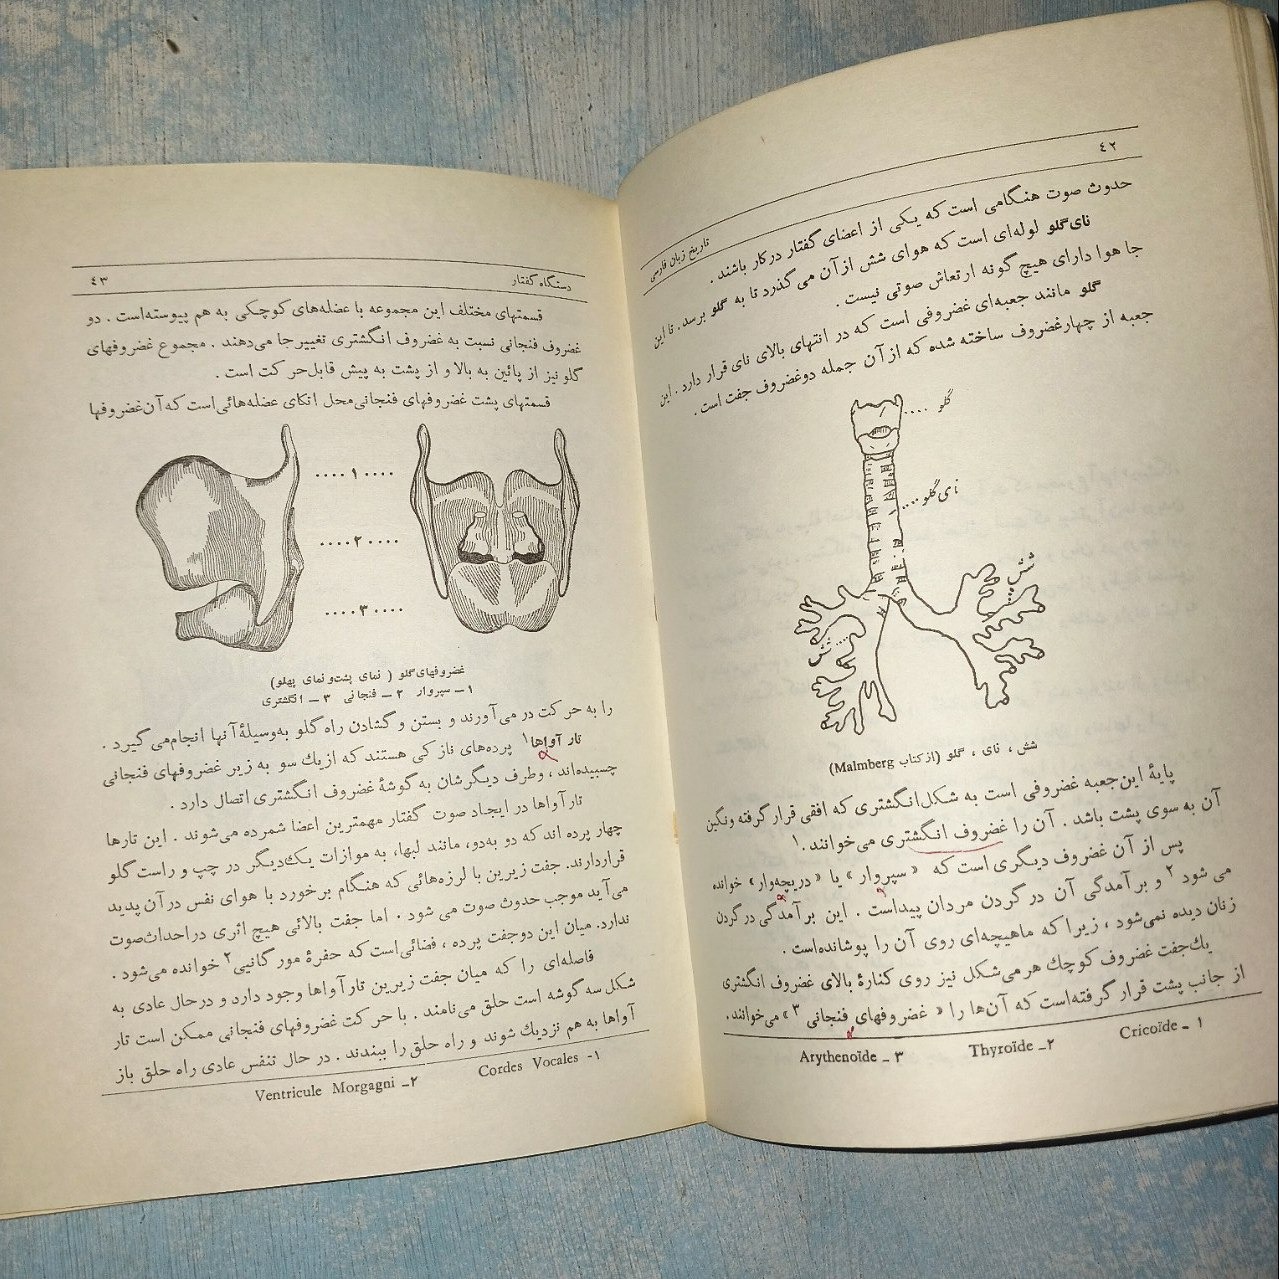 ٤٢
تاریخ زبان فارسی
حدوث صوت هنگامی است که یکی از اعضای گفتار درکار باشند .
نای‌گلو لوله‌ای است که هوای شش ازآن می گذرد تا به گلو برسد. تا این
جا هوا دارای هیچ گونه ارتعاش صوتی نیست .
گلو مانند جعبه‌ای غضروفی است که در انتهای بالای نای قرار دارد . این
جعبه از چهارغضروف ساخته شده که ازآن جمله دوغضروف جفت است .
گلو
نای‌گلو
شش
شش
شش ، نای ، گلو (ازکتاب Malmberg)
پایهٔ این‌جعبه غضروفی است به شکل‌انگشتری که افقی قرار گرفته ونگین
آن به سوی پشت باشد . آن را غضروف انگشتری می‌خوانند.۱
پس از آن غضروف دیگری است که «سپروار» یا «دریچه‌وار» خوانده
می شود ۲ و بر آمدگی آن در گردن مردان پیداست . این بر آمدگی در گردن
زنان دیده نمی‌شود ، زیرا که ماهیچه‌ای روی آن را پوشانده‌است .
یك‌جفت غضروف کوچك هرمی‌شکل نیز روی کنارهٔ بالای غضروف انگشتری
از جانب پشت قرار گرفته‌است که آن‌ها را «غضروفهای فنجانی ۳» می‌خوانند.
۱ ـ Cricoïde
۲ـ Thyroïde
۳ ـ Arythenoïde
دستگاه گفتار
٤٣
قسمتهای مختلف این مجموعه با عضله‌های کوچکی به هم پیوسته‌است . دو
غضروف فنجانی نسبت به غضروف انگشتری تغییرجا می‌دهند . مجموع غضروفهای
گلو نیز از پائین به بالا و از پشت به پیش قابل‌حر کت است .
قسمتهای پشت غضروفهای فنجانی‌محل اتکای عضله‌هائی‌است که‌آن‌غضروفها
....۱....
....۲....
....۳....
غضروفهای‌گلو ( نمای پشت‌و‌نمای پهلو)
۱ـ سپروار ۲ـ فنجانی ۳ـ انگشتری
را به حر کت در می‌آورند و بستن و گشادن راه گلو به‌وسیلهٔ آنها انجام‌می گیرد .
تار آواها۱ پرده‌های ناز کی هستند که ازیك سو به زیر غضروفهای فنجانی
چسبیده‌اند ، وطرف دیگرشان به گوشهٔ غضروف انگشتری اتصال دارد .
تارآواها در ایجاد صوت گفتار مهمترین اعضا شمرده می‌شوند . این تارها
چهار پرده اند که دو به‌دو، مانند لبها، به موازات یك‌دیگر در چپ و راست گلو
قراردارند. جفت زیرین با لرزه‌هائی که هنگام برخورد با هوای نفس درآن پدید
می‌آید موجب حدوث صوت می شود . اما جفت بالائی هیچ اثری دراحداث‌صوت
ندارد. میان این دوجفت پرده ، فضائی‌است که حفرهٔ مور گانیی۲ خوانده می‌شود .
فاصله‌ای را که میان جفت زیرین تارآواها وجود دارد و درحال عادی به
شکل سه گوشه است حلق می‌نامند . با حر کت غضروفهای فنجانی ممکن است تار
آواها به هم نزدیك شوند و راه حلق را ببندند . در حال تنفس عادی راه حلق باز
۱- Cordes Vocales
۲ـ Ventricule Morgagni